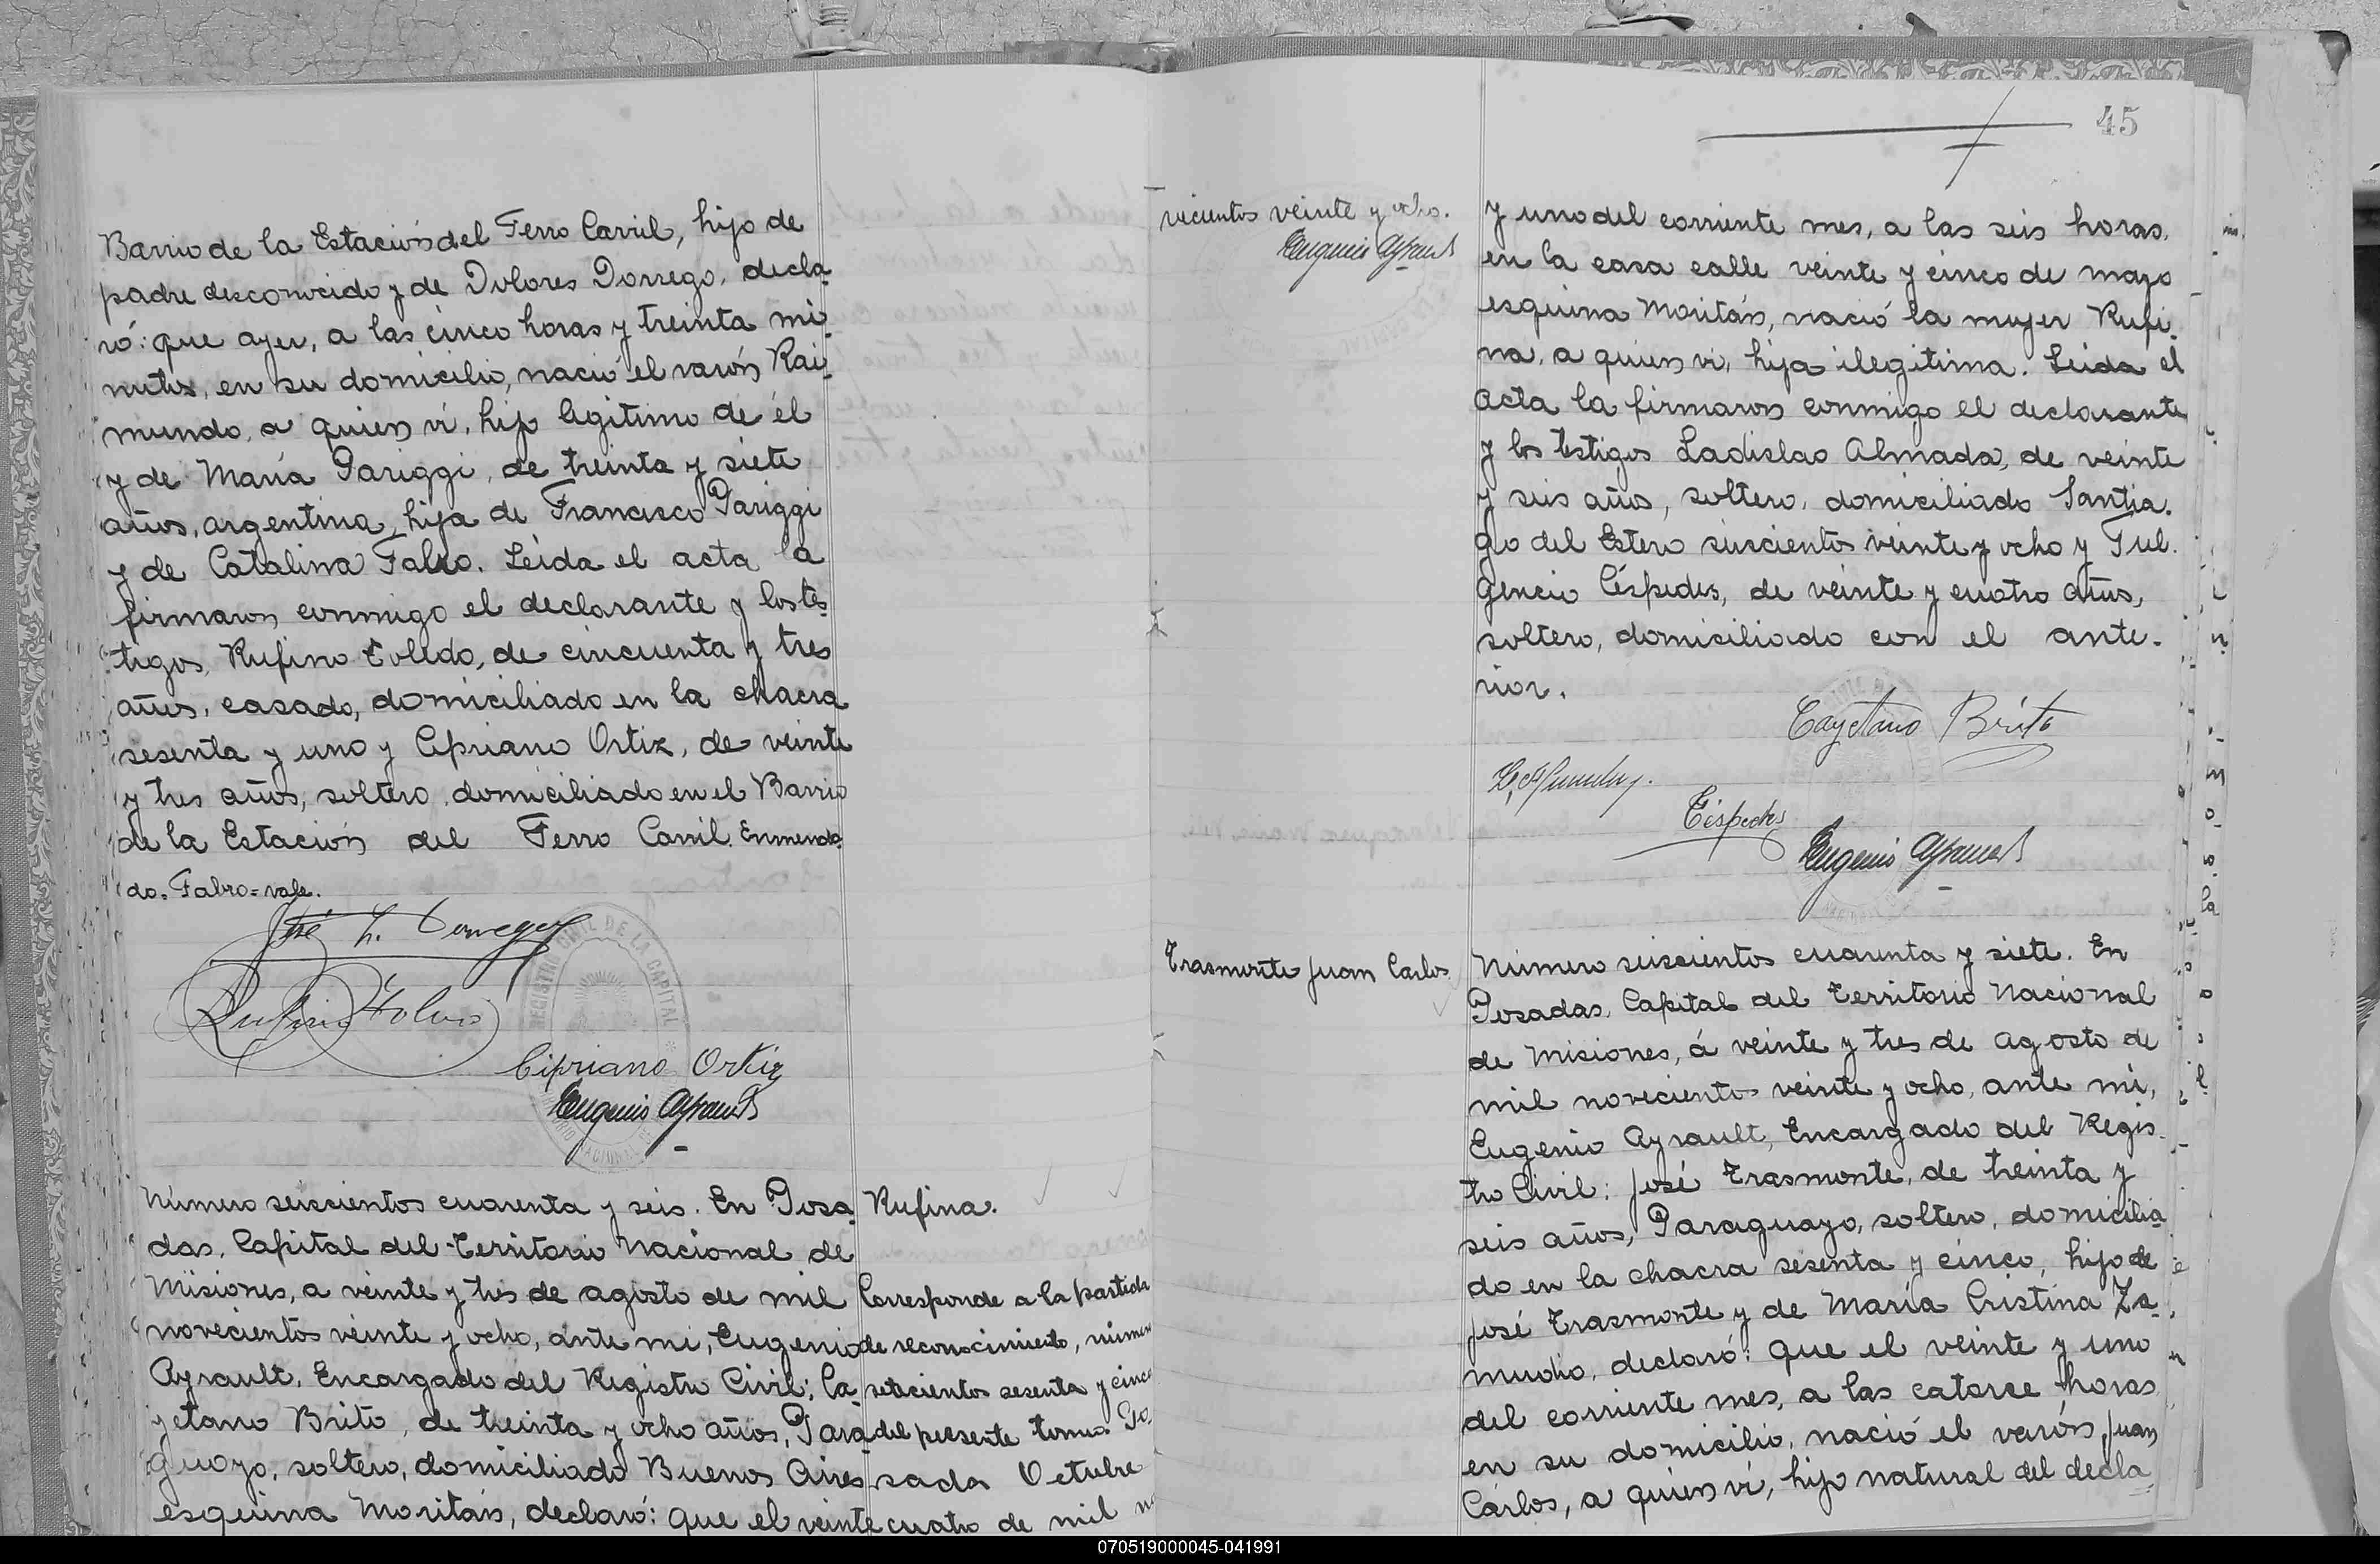 Barrio de la Estación del Ferro Carril, hijo de
padre desconocido y de Dolores Dorrego, decla
ró: que ayer, a las cinco horas y treinta mi
nutos, en su domicilio, nació el varón Rai
mundo, a quien ví, hijo legitimo de él
y de María Pariggi, de treinta y siete
años, argentina, hija de Francisco Pariggi
y de Catalina Fabro. Leida el acta la
firmaron conmigo el declarante y los tes
tigos, Rufino Toledo, de cincuenta y tres
años, casado, domiciliado en la chacra
sesenta y uno y Cipriano Ortiz, de veinte
y tres años, soltero, domiciliado en el Barrio
de la Estación del Ferro Carril. Enmenda
do=Fabro=vale.
José L. Dorrego
Rufino Toledo
REGISTRO CIVIL DE LA CAPITAL
Cipriano Ortiz
Eugenio Ayrault
Número seiscientos cuarenta y seis. En Posa
das, Capital del Territorio Nacional de
Misiones, a veinte y tres de agosto de mil
novecientos veinte y ocho, ante mi, Eugenio
Ayrault, Encargado del Registro Civil; Ca
yetano Brito, de treinta y ocho años, Para
guayo, soltero, domiciliado Buenos Aires
esquina Moritán, declaró: que el veinte
Rufina.
Corresponde a la partida
de reconocimiento, número
setecientos sesenta y cinco
del presente tomo. Po
sadas Octubre
cuatro de mil no
45
vecientos veinte y ocho.
Eugenio Ayrault
y uno del corriente mes, a las seis horas,
en la casa calle veinte y cinco de mayo
esquina Moritán, nació la mujer Rufi
na, a quien vi, hija ilegitima. Leida el
acta la firmaron conmigo el declarante
y los testigos Ladislao Almada, de veinte
y seis años, soltero, domiciliado Santia.
go del Estero seiscientos veinte y ocho y Ful.
gencio Céspedes, de veinte y cuatro años,
soltero, domiciliado con el ante.
rior.
Cayetano Brito
Céspedes
Eugenio Ayrault
Trasmonte Juan Carlos
Número seiscientos cuarenta y siete. En
Posadas, Capital del Territorio Nacional
de Misiones, á veinte y tres de agosto de
mil novecientos veinte y ocho, ante mi,
Eugenio Ayrault, Encargado del Regis.
tro Civil: José Trasmonte, de treinta y
seis años, Paraguayo, soltero, domicilia
do en la chacra sesenta y cinco, hijo de
José Trasmonte y de María Cristina Za
mudio, declaró: que el veinte y uno
del corriente mes, a las catorce horas
en su domicilio, nació el varón, Juan
Cárlos, a quien ví, hijo natural del decla
070519000045-041991